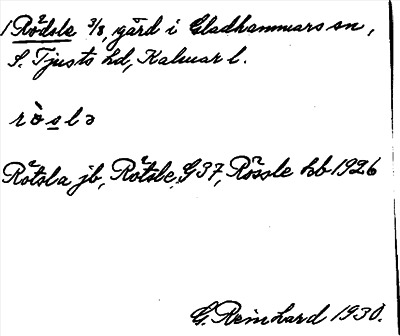 1 Rödsle 3/8, gård i Gladhammars sn,
S. Tjusts hd, Kalmar l.
rö̀slə
Rötsla jb, Rötsle, G 37, Rössle hb 1926
G. Reinhard 1930.